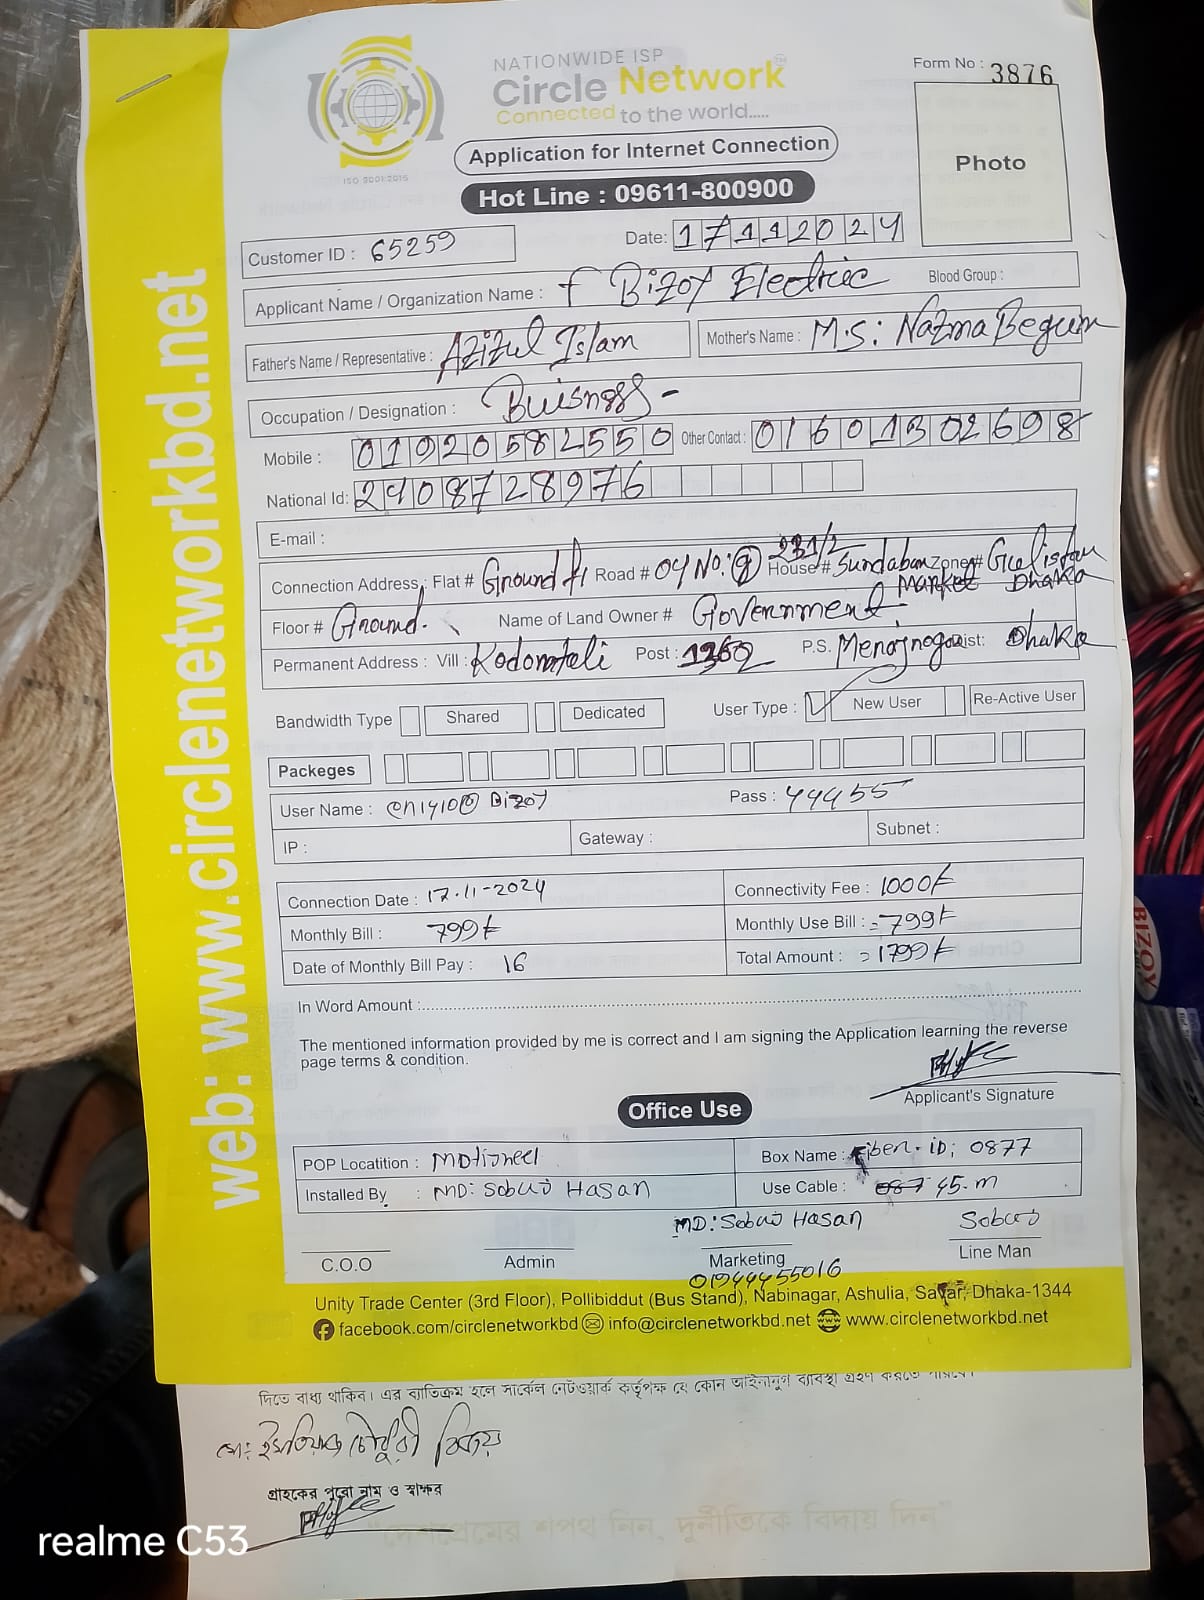 NATIONWIDE ISP
Circle Network™
Connected to the world.....
ISO 9001:2015
Form No : 3876
Photo
Application for Internet Connection
Hot Line : 09611-800900
Customer ID : 65259
Date: 17112024
Applicant Name / Organization Name : Bizoy Electric Blood Group :
Father's Name / Representative : Azizul Islam Mother's Name : M.S: Nazma Begum
Occupation / Designation :
Mobile : 01920582550 Other Contact : 01601302698
National Id: 2408728976
E-mail :
Connection Address, Flat # Ground Road # 04 No: House # 231/2 Sundaban Zone# Gulistan
Market Dhaka
Floor # Ground. Name of Land Owner # Government
Permanent Address : Vill : Kodomtoli Post : 1362 P.S. Dist: Dhaka
Bandwidth Type Shared Dedicated User Type : New User Re-Active User
Packeges
User Name : Bizoy Pass : 44455
IP : Gateway : Subnet :
Connection Date : 17.11-2024 Connectivity Fee : 1000/-
Monthly Bill : 799/- Monthly Use Bill : = 799/-
Date of Monthly Bill Pay : 16 Total Amount : = 1799/-
In Word Amount :
The mentioned information provided by me is correct and I am signing the Application learning the reverse
page terms & condition.
Applicant's Signature
Office Use
POP Locatition : Motijheel Box Name : Fiber-iD; 0877
Installed By : MD: Sobuj Hasan Use Cable : 45.m
MD: Sobuj Hasan Sobuj
C.O.O Admin Marketing Line Man
01944455016
Unity Trade Center (3rd Floor), Pollibiddut (Bus Stand), Nabinagar, Ashulia, Savar, Dhaka-1344
facebook.com/circlenetworkbd info@circlenetworkbd.net www.circlenetworkbd.net
web: www.circlenetworkbd.net
দিতে বাধ্য থাকিব। এর ব্যতিক্রম হলে সার্কেল নেটওয়ার্ক কর্তৃপক্ষ যে কোন আইনানুগ ব্যবস্থা গ্রহণ করতে পারবে।
মো: ইমতিয়াজ চৌধুরী বিজয়
গ্রাহকের পুরো নাম ও স্বাক্ষর
"দেশপ্রেমের শপথ নিন, দুর্নীতিকে বিদায় দিন"
BIZOY
realme C53